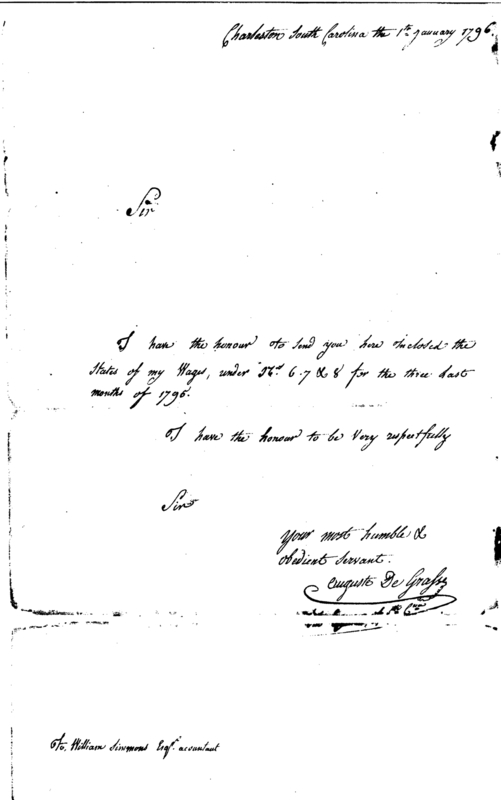 Charleston South Carolina the 1st January 1796.
Sir
I have the honour to send you here inclosed the
States of my Wages, under No. 6. 7 & 8 for the three last
months of 1795.
I have the honour to be Very respectfully
Sir
your most humble &
obedient Servant.
Auguste De Grasse
To, William Simmons Esqr. accountant